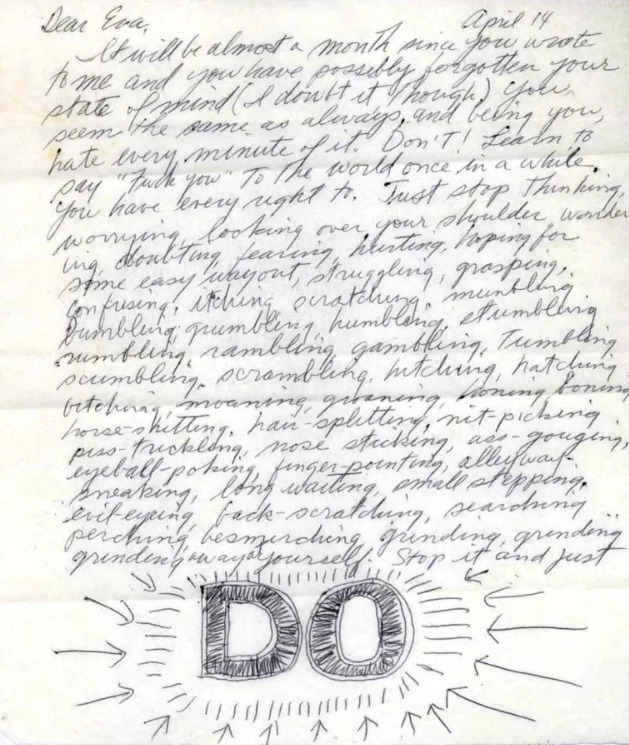 Dear Eva, April 14
It will be almost a month since you wrote
to me and you have possibly forgotten your
state of mind (I doubt it though). You
seem the same as always, and being you,
hate every minute of it. Don't! Learn to
say "Fuck you" to the world once in a while.
You have every right to. Just stop thinking,
worrying, looking over your shoulder, wonder-
ing, doubting, fearing, hurting, hoping for
some easy way out, struggling, grasping,
confusing, itching, scratching, mumbling,
bumbling, grumbling, humbling, stumbling,
rumbling, rambling, gambling, tumbling,
scumbling, scrambling, hitching, hatching,
bitching, moaning, groaning, honing, boning,
horse-shitting, hair-splitting, nit-picking,
piss-trickling, nose sticking, ass-gouging,
eyeball-poking, finger-pointing, alleyway-
sneaking, long waiting, small stepping,
evil-eyeing, back-scratching, searching,
perching, besmirching, grinding, grinding
grinding away at yourself. Stop it and just
DO